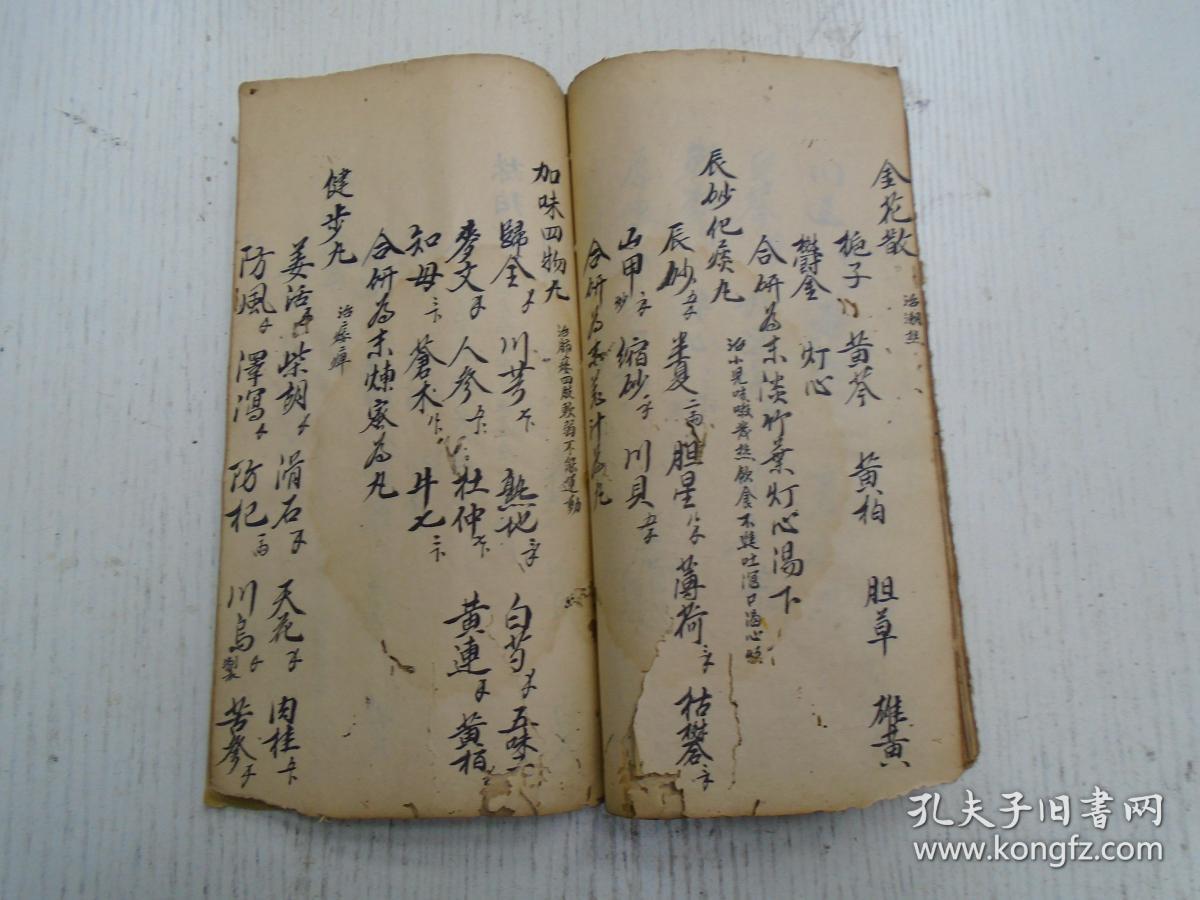 金花散 治潮热
梔子 黄芩 黄柏 胆草 雄黄
欝金 灯心
合研為末淡竹葉灯心湯下
辰砂化痰丸 治小兒咳嗽發热飲食不進吐瀉口渴心
辰砂 姜夏二両 胆星 薄荷 枯礬
山甲炒 缩砂 川貝
合研為末姜汁為丸
加味四物丸 治 痿四肢軟弱不能運動
歸全 川芎 熟地 白芍 五味
麥文 人參 杜仲 黄連 黄柏
知母 蒼术 牛七
合研為末煉蜜為丸
健步丸 治痿痺
姜活 柴胡 滑石 天花 肉桂
防風 澤瀉 防杞 川烏製 苦參
孔夫子旧书网
www.kongfz.com